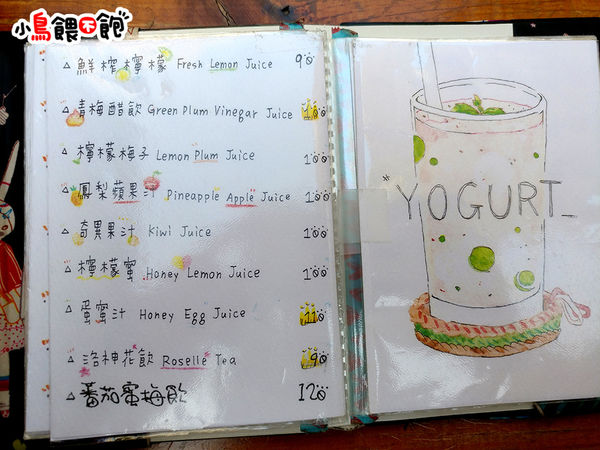 小鳥餵不飽
△ 鮮榨檸檬 Fresh Lemon Juice 90
△ 青梅醋飲 Green Plum Vinegar Juice 100
△ 檸檬梅子 Lemon Plum Juice 100
△ 鳳梨蘋果汁 Pineapple Apple Juice 100
△ 奇異果汁 Kiwi Juice 100
△ 檸檬蜜 Honey Lemon Juice 100
△ 蛋蜜汁 Honey Egg Juice 110
△ 洛神花飲 Roselle Tea 90
△ 蕃茄蜜梅飲 120
"YOGURT_